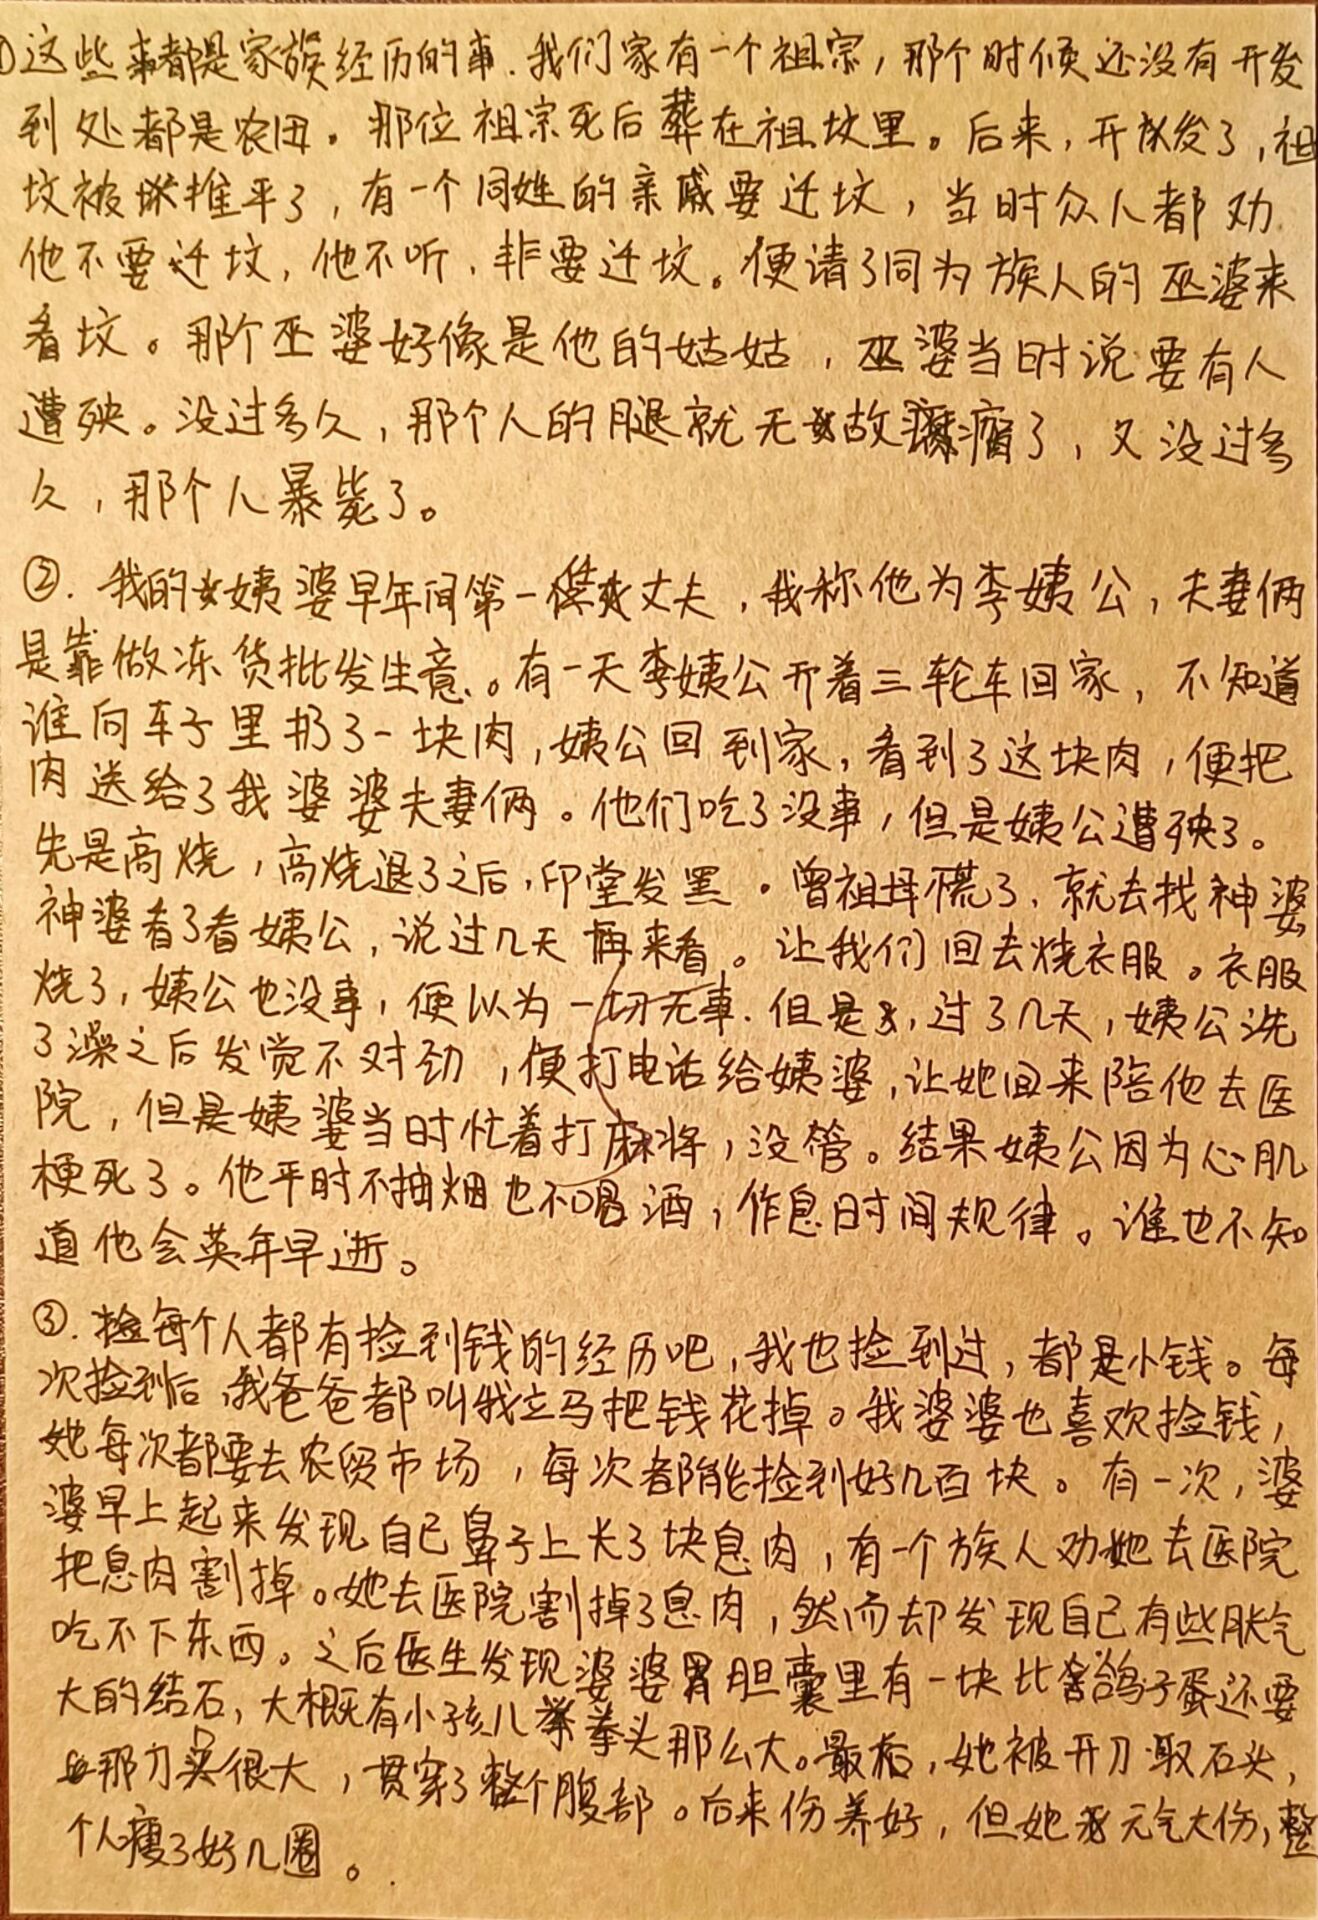 ①这些事都是家族经历的事.我们家有一个祖宗,那个时候还没有开发
到处都是农田。那位祖宗死后葬在祖坟里。后来,开发了,祖
坟被推平了,有一个同姓的亲戚要迁坟,当时众人都劝
他不要迁坟,他不听,非要迁坟。便请了同为族人的巫婆来
看坟。那个巫婆好像是他的姑姑,巫婆当时说要有人
遭殃。没过多久,那个人的腿就无故瘸了,又没过多
久,那个人暴毙了。
②.我的姨婆早年间第一任丈夫,我称他为李姨公,夫妻俩
是靠做冻货批发生意.。有一天李姨公开着三轮车回家,不知道
谁向车子里扔了一块肉,姨公回到家,看到了这块肉,便把
肉送给了我婆婆夫妻俩。他们吃了没事,但是姨公遭殃了。
先是高烧,高烧退了之后,印堂发黑。曾祖母慌了,就去找神婆
神婆看了看姨公,说过几天再来看。让我们回去烧衣服。衣服
烧了,姨公也没事,便以为一切无事.但是,过了几天,姨公洗
了澡之后发觉不对劲,便打电话给姨婆,让她回来陪他去医
院,但是姨婆当时忙着打麻将,没管。结果姨公因为心肌
梗死了。他平时不抽烟也不喝酒,作息时间规律。谁也不知
道他会英年早逝。
③.每个人都有捡到钱的经历吧,我也捡到过,都是小钱。每
次捡到后,我爸爸都叫我立马把钱花掉。我婆婆也喜欢捡钱,
她每次都要去农贸市场,每次都能捡到好几百块。有一次,婆
婆早上起来发现自己鼻子上长了块息肉,有一个族人劝她去医院
把息肉割掉。她去医院割掉了息肉,然而却发现自己有些胀气
吃不下东西。之后医生发现婆婆胆囊里有一块比鸽子蛋还要
大的结石,大概有小孩儿拳头那么大。最后,她被开刀取石头,
那刀口很大,贯穿了整个腹部。后来伤养好,但她元气大伤,整
个人瘦了好几圈。